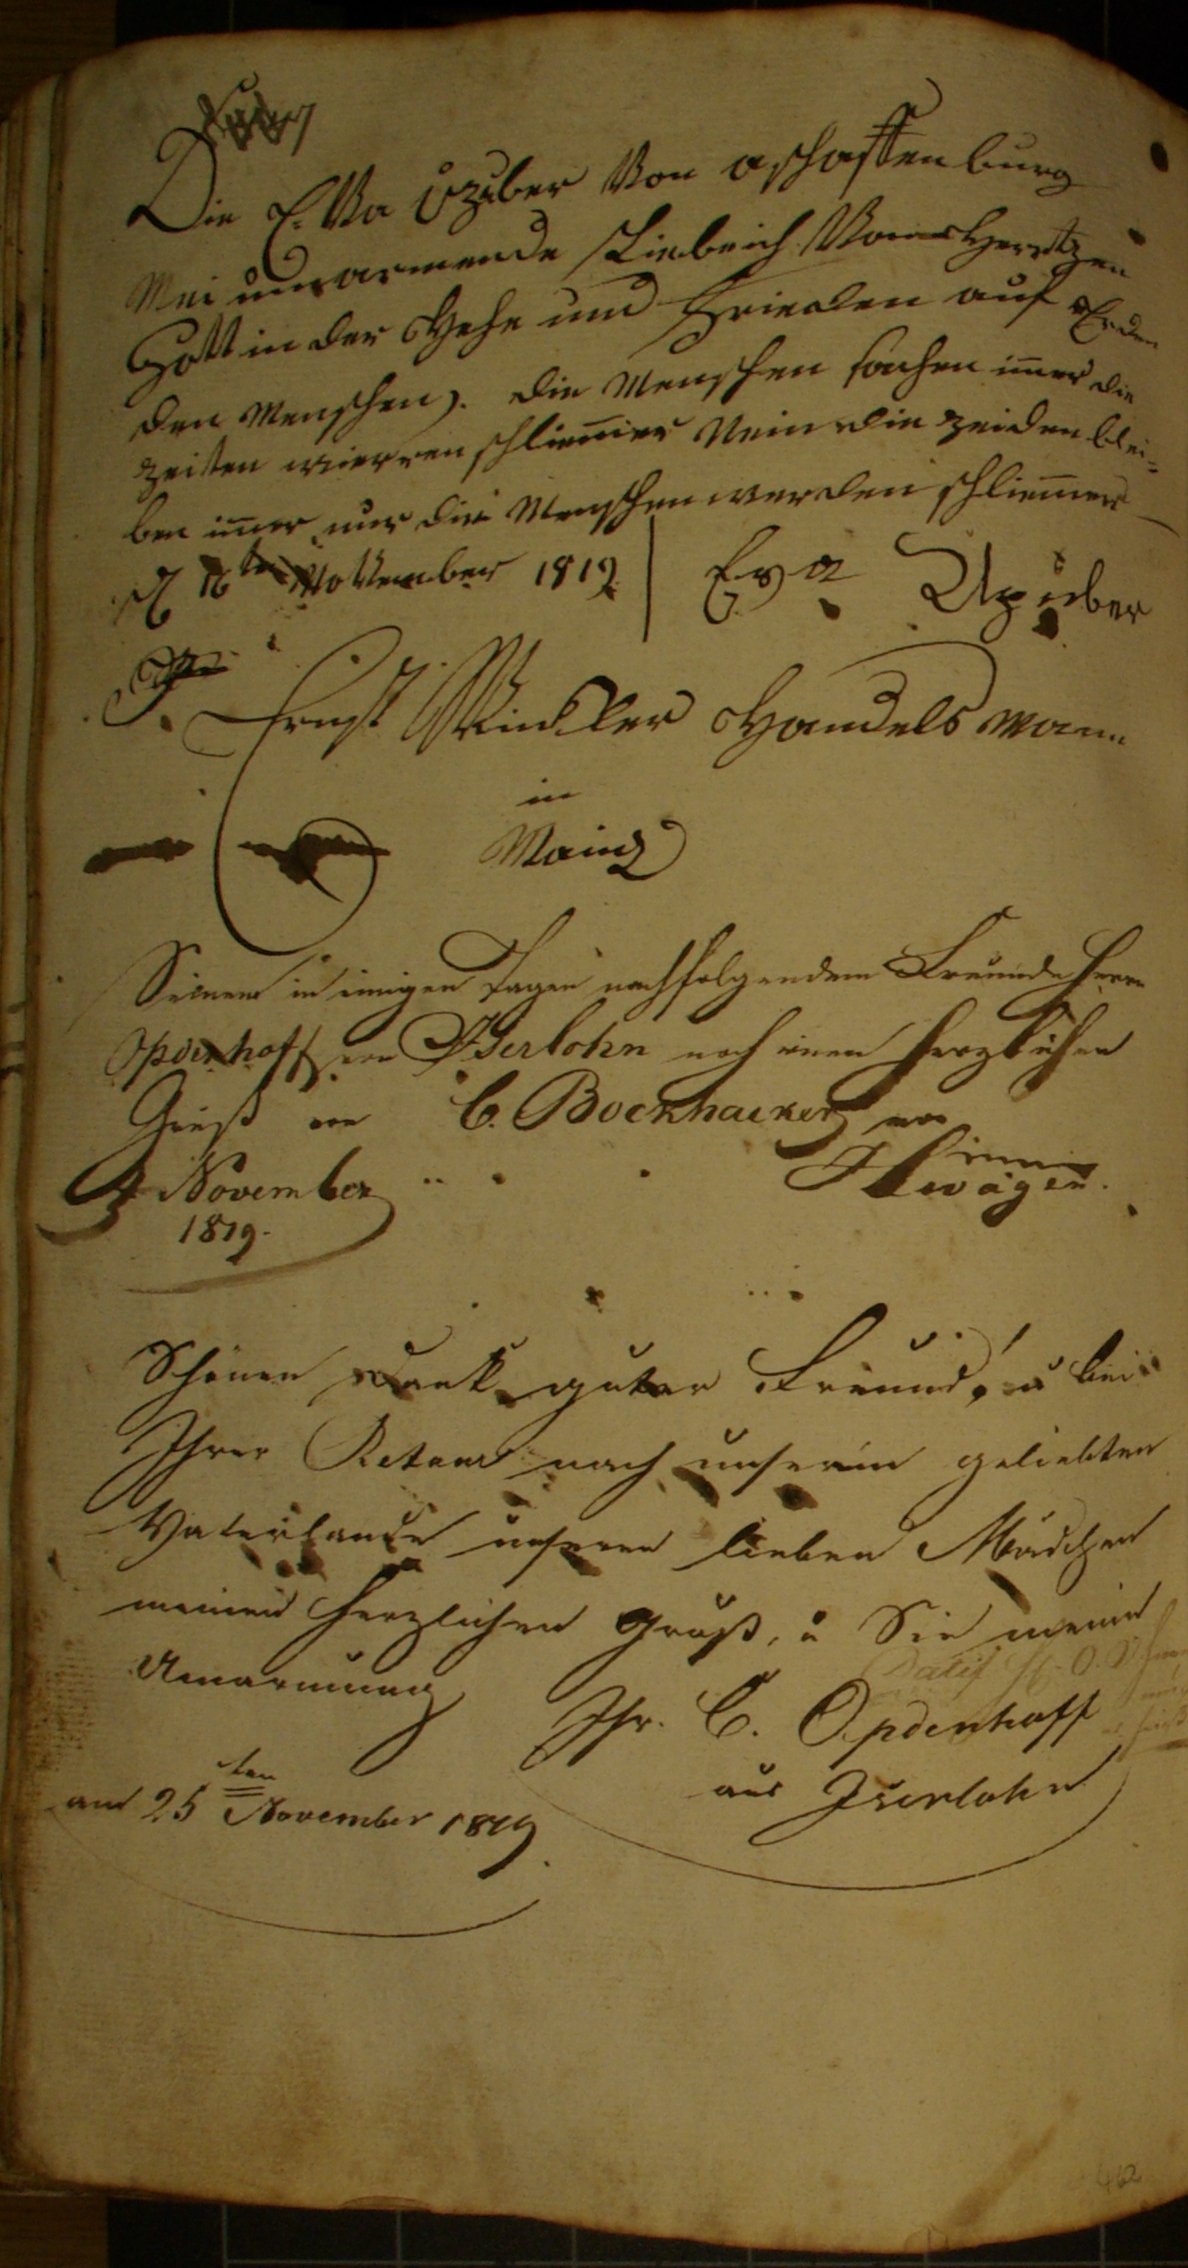 Die E. Va Uzuber Von aschaffenburg
Mei umarmende Liebreich Von Hertzen
Gott in der Hehe und Frieden auf Erden
den Menschen. die Menschen sachen imer die
zeitten wierren schliemer Nein die zeiden blei=
ben imer nur die Menschen werden schliemer
d 16ten November 1819 Eva Uzuber
Ernst Winckler Handels mann
in
Mainz
Seinem in einigen Tagen nachfolgendem Freunde Herrn
Opdenhoff von Iserlohn noch einen herzlichen
Gruß von C. Bockhacker von
4 November
1819.
Schönen Dank guter Freund, u bei
Ihrer Retour nach unserm geliebten
Vaterlande unseren lieben Mädchen
meinen herzlichen Gruß, u Sie meine
Umarmung
Ihr. C. Opdenhoff
aus Iserlohn
am 25ten November 1819.
462